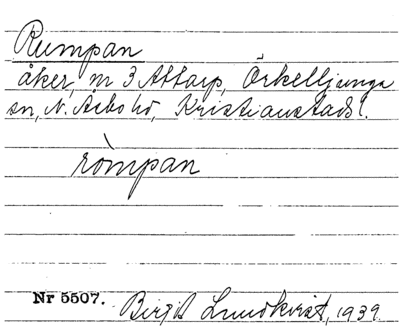 Rumpan
åker, m 3 Attarp, Örkelljunga
sn, N. Åsbo hd, Kristianstads l.
ròmpan
Nr 5507. Birgit Lundkvist, 1939.